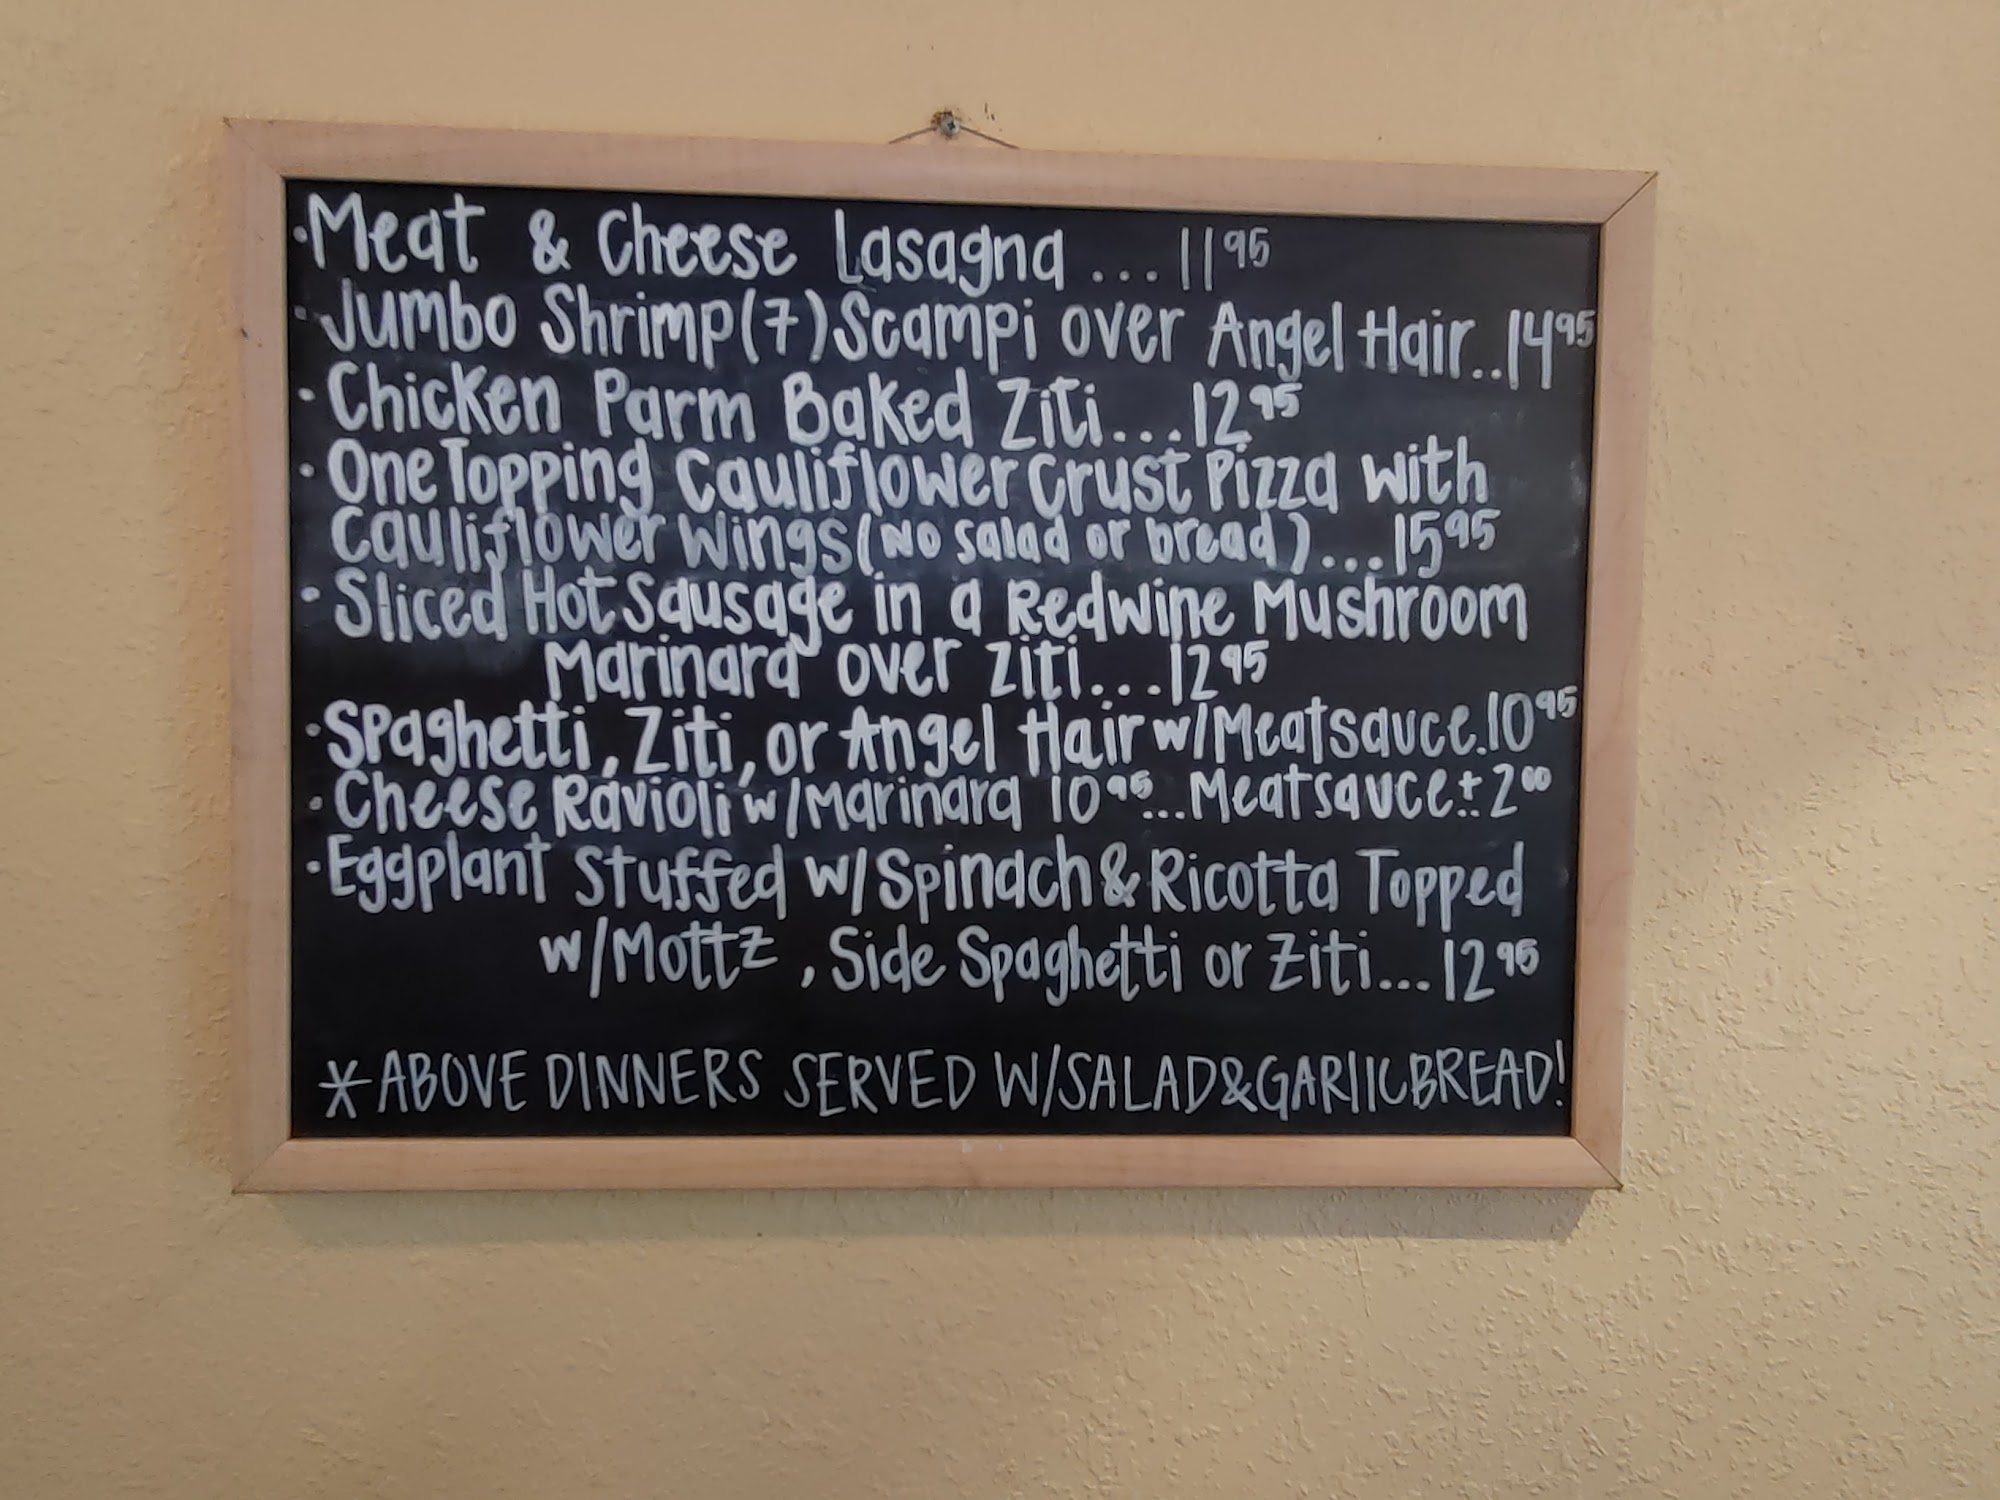 ·Meat & Cheese Lasagna ... 11 95
·Jumbo Shrimp (7) Scampi over Angel Hair..14 95
·Chicken Parm Baked Ziti...12 95
·One Topping Cauliflower Crust Pizza with
Cauliflower Wings (No salad or bread)...15 95
·Sliced Hot Sausage in a Redwine Mushroom
Marinara over Ziti...12 95
·Spaghetti, Ziti, or Angel Hair w/Meatsauce.10 95
·Cheese Ravioli w/Marinara 10 95...Meatsauce±2 00
·Eggplant Stuffed w/Spinach & Ricotta Topped
w/Mottz, Side Spaghetti or Ziti...12 95
*ABOVE DINNERS SERVED W/SALAD&GARLIC BREAD!